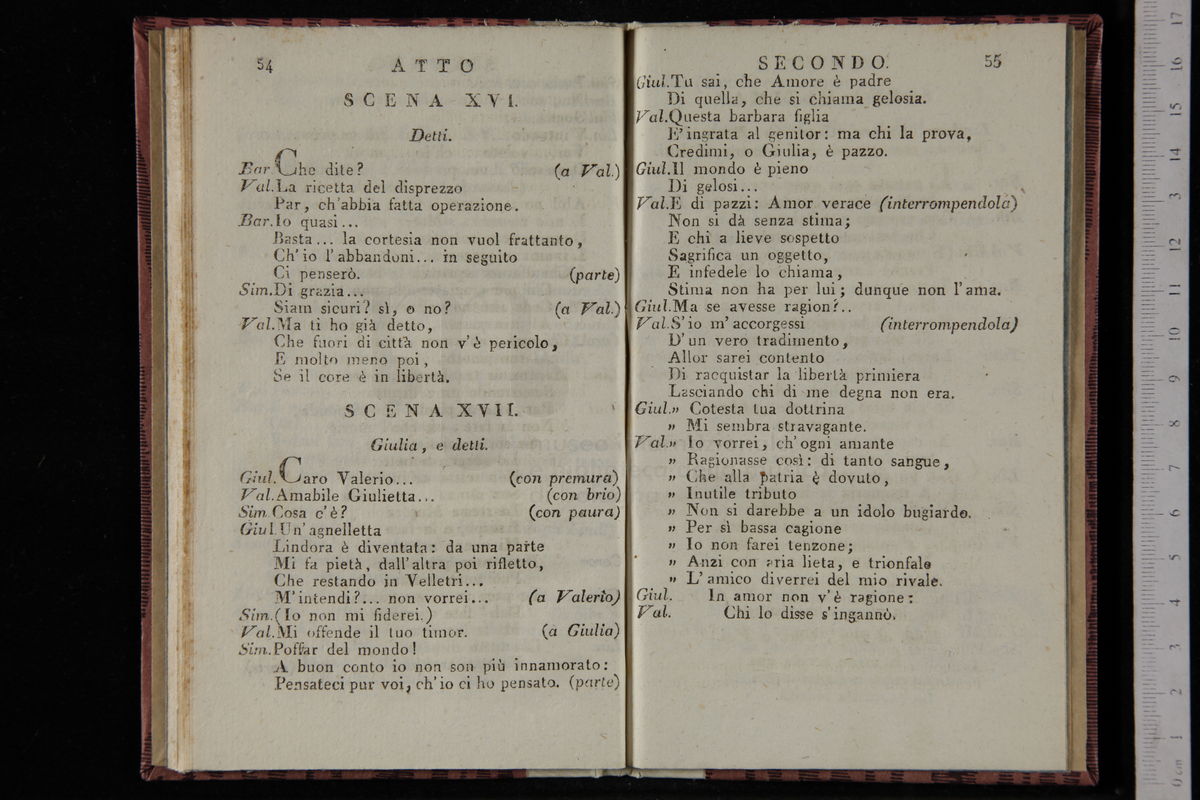 54 ATTO
SCENA XVI.
Detti.
Bar. Che dite? (a Val.)
Val. La ricetta del disprezzo
Par, ch'abbia fatta operazione.
Bar. Io quasi...
Basta... la cortesia non vuol frattanto,
Ch'io l'abbandoni... in seguito
Ci penserò. (parte)
Sim. Di grazia...
Siam sicuri? sì, o no? (a Val.)
Val. Ma ti ho già detto,
Che fuori di città non v'è pericolo,
E molto meno poi,
Se il core è in libertà.
SCENA XVII.
Giulia, e detti.
Giul. Caro Valerio... (con premura)
Val. Amabile Giulietta... (con brio)
Sim. Cosa c'è? (con paura)
Giul. Un'agnelletta
Lindora è diventata: da una parte
Mi fa pietà, dall'altra poi rifletto,
Che restando in Velletri...
M'intendi?... non vorrei... (a Valerio)
Sim. (Io non mi fiderei.)
Val. Mi offende il tuo timor. (a Giulia)
Sim. Poffar del mondo!
A buon conto io non son più innamorato:
Pensateci pur voi, ch'io ci ho pensato. (parte)
SECONDO. 55
Giul. Tu sai, che Amore è padre
Di quella, che si chiama gelosia.
Val. Questa barbara figlia
E' ingrata al genitor: ma chi la prova,
Credimi, o Giulia, è pazzo.
Giul. Il mondo è pieno
Di gelosi...
Val. E di pazzi: Amor verace (interrompendola)
Non si dà senza stima;
E chi a lieve sospetto
Sagrifica un oggetto,
E infedele lo chiama,
Stima non ha per lui; dunque non l'ama.
Giul. Ma se avesse ragion?..
Val. S'io m'accorgessi (interrompendola)
D'un vero tradimento,
Allor sarei contento
Di racquistar la libertà primiera
Lasciando chi di me degna non era.
Giul. » Cotesta tua dottrina
» Mi sembra stravagante.
Val. » Io vorrei, ch'ogni amante
» Ragionasse così: di tanto sangue,
» Che alla patria è dovuto,
» Inutile tributo
» Non si darebbe a un idolo bugiardo.
» Per sì bassa cagione
» Io non farei tenzone;
» Anzi con aria lieta, e trionfale
» L'amico diverrei del mio rivale.
Giul. In amor non v'è ragione:
Val. Chi lo disse s'ingannò.
0 cm 1 2 3 4 5 6 7 8 9 10 11 12 13 14 15 16 17